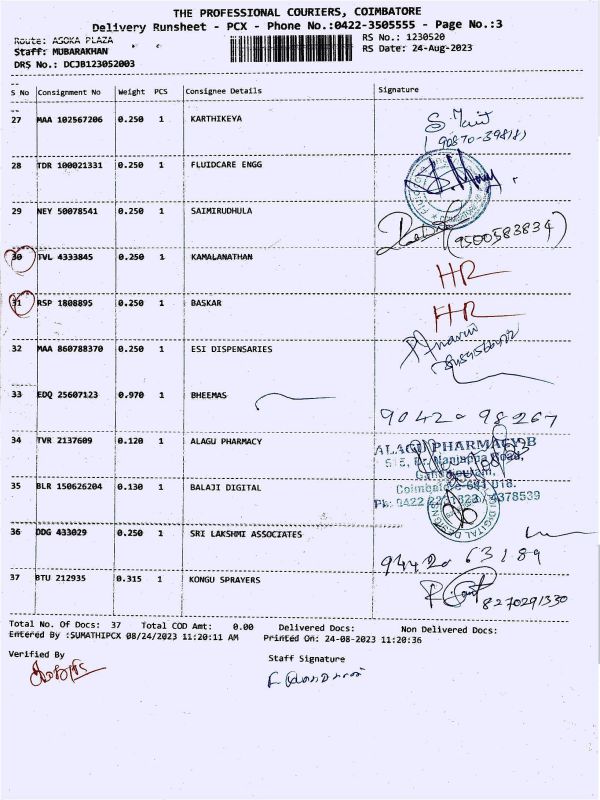 THE PROFESSIONAL COURIERS, COIMBATORE
Delivery Runsheet - PCX - Phone No.:0422-3505555 - Page No.:3
Route: ASOKA PLAZA
RS No.: 1230520
Staff: MUBARAKHAN
RS Date: 24-Aug-2023
DRS No.: DCJB123052003
S No Consignment No Weight PCS Consignee Details Signature
27 MAA 102567206 0.250 1 KARTHIKEYA
28 TDR 100021331 0.250 1 FLUIDCARE ENGG
29 NEY 50078541 0.250 1 SAIMIRUDHULA
(9500583834)
30 TVL 4333845 0.250 1 KAMALANATHAN HR
31 RSP 1808895 0.250 1 BASKAR HR
32 MAA 860788370 0.250 1 ESI DISPENSARIES
33 EDQ 25607123 0.970 1 BHEEMAS
9042098267
34 TVR 2137609 0.120 1 ALAGU PHARMACY
ALAGU PHARMACY
35 BLR 150626204 0.130 1 BALAJI DIGITAL
36 DDG 433029 0.250 1 SRI LAKSHMI ASSOCIATES
9442063189
37 BTU 212935 0.315 1 KONGU SPRAYERS
8270291330
Total No. Of Docs: 37 Total COD Amt: 0.00 Delivered Docs: Non Delivered Docs:
Entered By :SUMATHIPCX 08/24/2023 11:20:11 AM Printed On: 24-08-2023 11:20:36
Verified By
Staff Signature